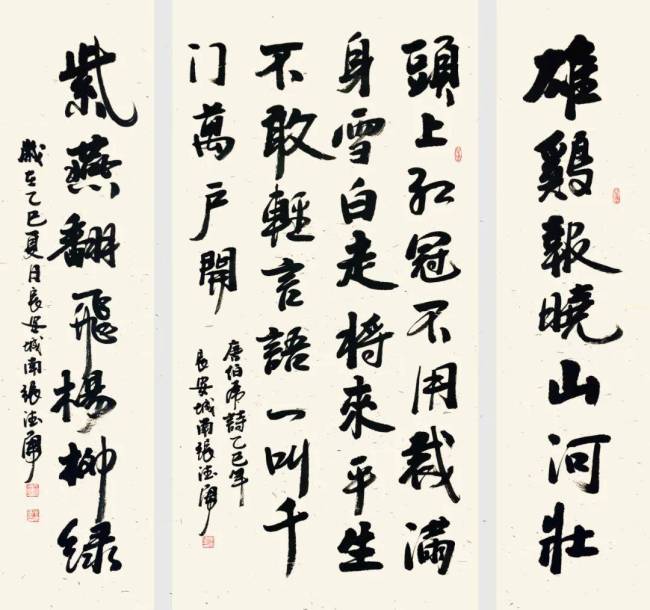 雄鷄報曉山河壯
頭上红冠不用裁滿
身雪白走將來平生
不敢輕言語一叫千
门萬户開
唐伯虎詩乙巳年
長安城南張德
紫燕翻飛楊柳绿
歲在乙巳夏月長安城南張德